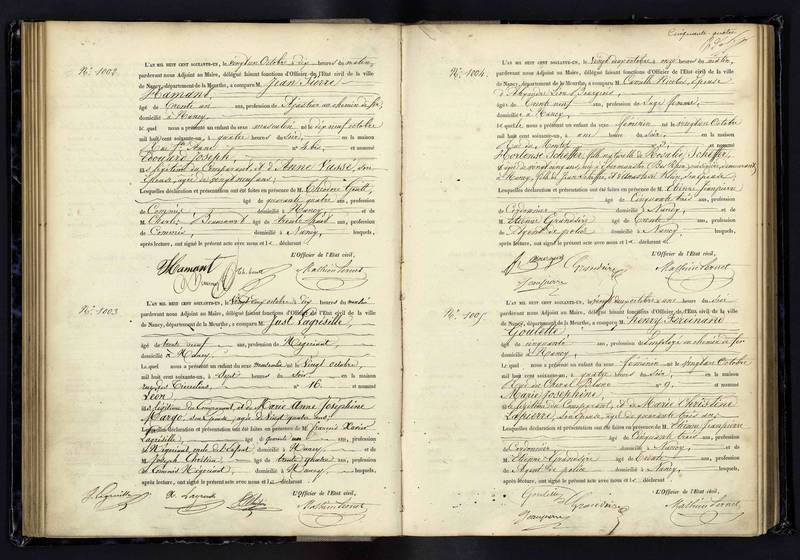 Cinquante-quatre
N.º 1002.
L'AN MIL HUIT CENT SOIXANTE-UN, le vingt un Octobre à dix heures du matin,
pardevant nous Adjoint au Maire, délégué faisant fonctions d'Officier de l'Etat civil de la ville
de Nancy, département de la Meurthe, a comparu M. Jean Pierre
Hamant,
âgé de trente un ans, profession de Ajusteur au chemin de fer,
domicilié à Nancy,
lequel nous a présenté un enfant du sexe masculin né le dix neuf octobre
mil huit cent soixante-un, à quatre heures du soir, en la maison
Rue Ste Anne n.º 4 bis, et nommé
Edouard Joseph,
fils légitime du Comparant, et d'Anne Vasse, son
épouse, âgée de vingt neuf ans;
Lesquelles déclaration et présentation ont été faites en présence de M.
âgé de quarante quatre ans, profession
de Commis, domicilié à Nancy et de
M. Charles âgé de trente huit ans, profession
de Commis, domicilié à Nancy, lesquels,
après lecture, ont signé le présent acte avec nous et le déclarant.
L'Officier de l'Etat civil,
Hamant
N.º 1003
L'AN MIL HUIT CENT SOIXANTE-UN, le vingt un octobre à dix heures du matin
pardevant nous Adjoint au Maire, délégué faisant fonctions d'Officier de l'Etat civil de la ville
de Nancy, département de la Meurthe, a comparu M. Just Lagrésille,
âgé de trente neuf ans, profession de Négociant,
domicilié à Nancy,
lequel nous a présenté un enfant du sexe masculin né le Vingt octobre,
mil huit cent soixante-un, à sept heures du soir en la maison
n.º 16 et nommé
Léon
fils légitime du Comparant, et de Marie Anne Joséphine
son Epouse, âgée de Vingt quatre ans;
Lesquelles déclaration et présentation ont été faites en présence de M. François Xavier
Lagrésille, âgé de quarante ans, profession
de Négociant domicilié à Nancy et de
M. Joseph Chrétien âgé de trente quatre ans, profession
de Commis Négociant, domicilié à Nancy, lesquels,
après lecture, ont signé le présent acte avec nous et le déclarant.
L'Officier de l'Etat civil,
N.º 1004.
L'AN MIL HUIT CENT SOIXANTE-UN, le vingt un octobre à onze heures du matin,
pardevant nous Adjoint au Maire, délégué faisant fonctions d'Officier de l'Etat civil de la ville
de Nancy, département de la Meurthe, a comparu M. Camille Nicolas, Epouse
âgée de trente neuf ans, profession de Sage femme,
domiciliée à Nancy,
laquelle nous a présenté un enfant du sexe féminin né le vingt un Octobre
mil huit cent soixante-un, à une heure du en la maison
et nommé
Hortense Scheffer, fille naturelle de Rosalie Scheffer,
âgée de vingt ans,
à Nancy, fille de Jean Scheffer,
Lesquelles déclaration et présentation ont été faites en présence de M. Etienne Jeanpierre
âgé de Cinquante trois ans, profession
de Cordonnier, domicilié à Nancy et de
M. Etienne Grandsire âgé de trente ans, profession
de Agent de police domicilié à Nancy, lesquels,
après lecture, ont signé le présent acte avec nous et la déclarante.
L'Officier de l'Etat civil,
Grandsire
Jeanpierre
N.º 1005.
L'AN MIL HUIT CENT SOIXANTE-UN, le vingt un octobre à une heure du soir
pardevant nous Adjoint au Maire, délégué faisant fonctions d'Officier de l'Etat civil de la ville
de Nancy, département de la Meurthe, a comparu M. Henry Ferdinand
Goulette,
âgé de cinquante ans, profession de Employé au chemin de fer
domicilié à Nancy,
lequel nous a présenté un enfant du sexe féminin né le vingt un Octobre
mil huit cent soixante-un, à quatre heures du en la maison
Rue du Cheval Blanc n.º 9, et nommé
Marie Joséphine,
fille légitime du Comparant, et de Marie Christine
Lapierre, son épouse, âgée de quarante trois ans;
Lesquelles déclaration et présentation ont été faites en présence de M. Etienne Jeanpierre
âgé de Cinquante trois ans, profession
de Cordonnier, domicilié à Nancy et de
M. Etienne Grandsire âgé de trente ans, profession
de Agent de police domicilié à Nancy, lesquels,
après lecture, ont signé le présent acte avec nous et le déclarant.
L'Officier de l'Etat civil,
Goulette
Grandsire
Jeanpierre